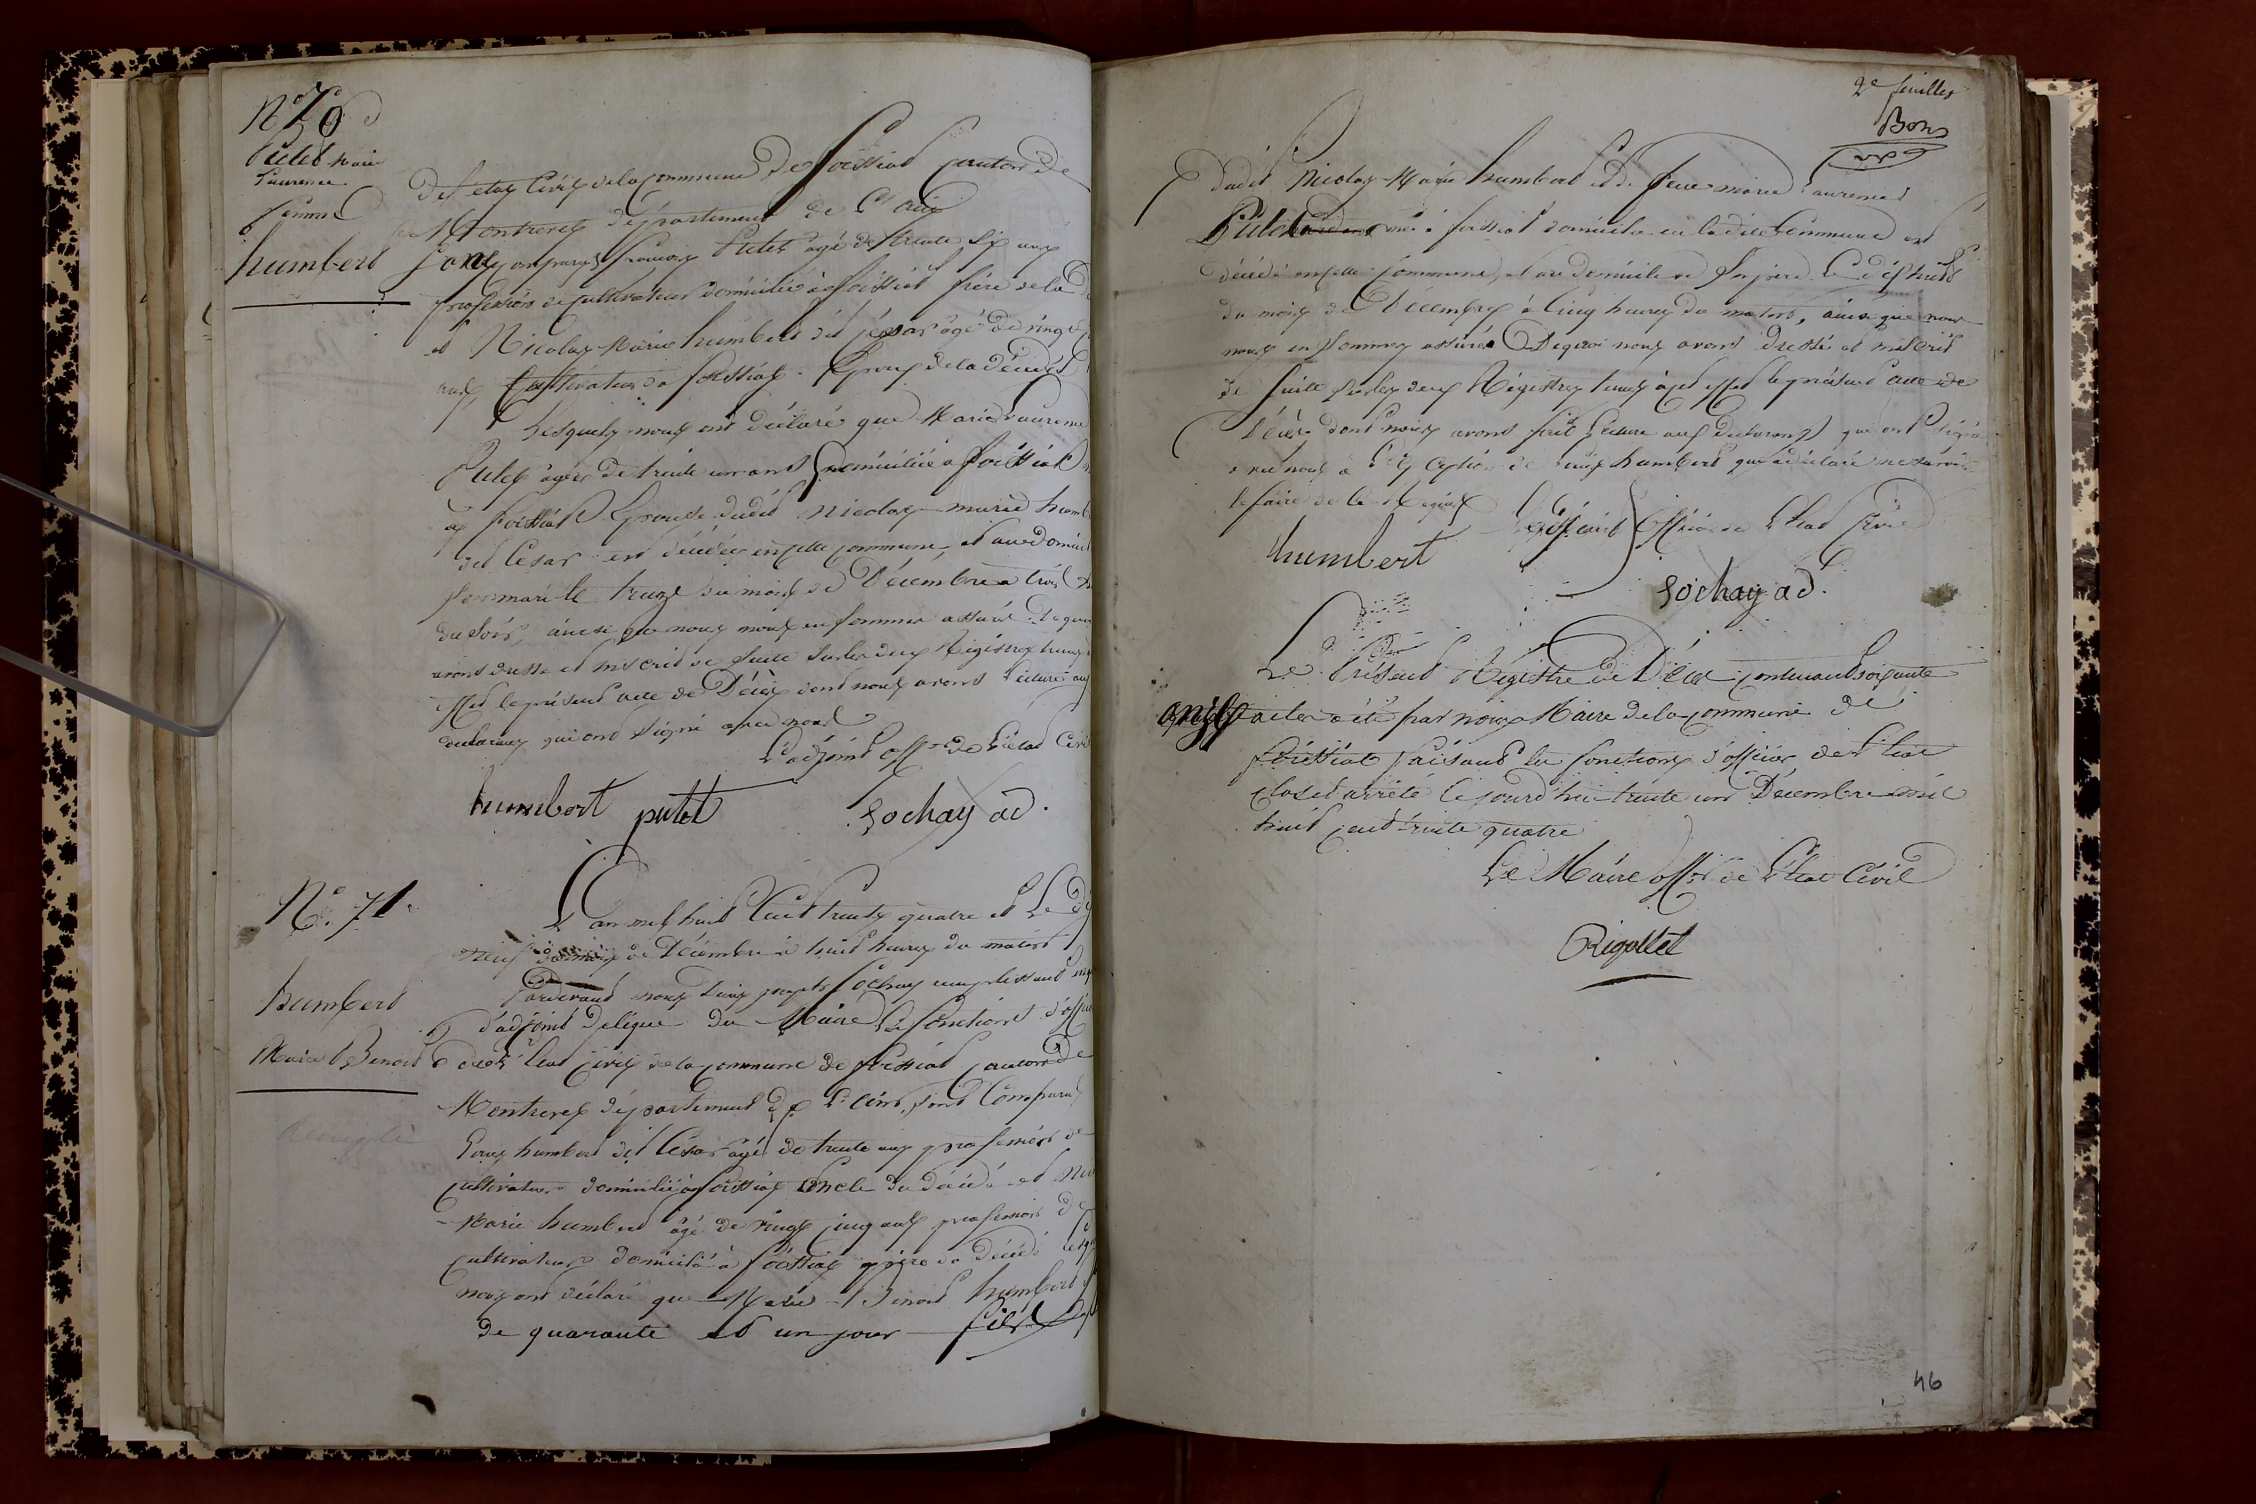 N° 70
Putet Marie
Laurence
femme
humbert
De l'etat Civil de la Commune De foissiat Canton De
Montrevel département de L'ain
sont Comparus françois Putet agé de trente six ans
profession de cultivateur domicilié à foissiat frère de la
et Nicolas Marie humbert dit César agé de vingt
ans Cultivateur à foissiat Epoux de la décédée
Lesquels nous ont déclaré que Marie Laurence
Putet agée de trente un ans domiciliée à foissiat
à foissiat Epouse dudit Nicolas marie humb
dit César est décédée en cette commune et au domicile
son mari le treize du mois de Décembre à trois
du Soir, ainsi que nous nous en sommes assuré De quoi
avons dressé et inscrit de suite sur les deux Régistres tenus à
effet le présent acte de Décès dont nous avons lecture aux
declarans qui ont signé avec nous
L'adjoint off. de L'etat Civil
humbert putet Sochay ad.
N° 71
humbert
Marie Benoit
L'an mil huit Cent trente quatre et Le dix
neuf du mois de Décembre à huit heures du matin
Pardevant nous Sochay remplissant
d'adjoint deligué du Maire Les fonctions d'officier
de l'etat Civil de la commune de foissiat canton De
Montrevel département de L'ain, sont Comparus
humbert dit César agé de trente ans profession de
cultivateur domicilié à foissiat oncle du décédé et Nic
Marie humbert agé de vingt cinq ans profession de
cultivateur domicilié à foissiat père du décédé lesq
nous ont déclaré que Marie Benoit humbert
de quarante et un jour fils
2e feuillet
Bon
dudit Nicolas Marie humbert et de feue marie Laurence
Putet né à foissiat domicilié en ladite Commune est
décédé en cette Commune, et au domicile de son père Le dix huit
du mois de Decembre à Cinq heures du matin, ainsi que nous
nous en sommes assuré De quoi nous avons dressé et inscrit
de suite sur les deux Régistres tenus à cet effet le présent acte de
Décès dont nous avons fait Lecture aux declarans qui ont signé
avec nous à L'exception de humbert qui a déclaré ne savoir
le faire de ce Requis
L'adjoint Officier de L'etat Civil
humbert
Sochay ad.
Le Présent Régistre de Décès contenant soixante
onze actes a été par nous Maire de la commune de
foissiat faisant les fonctions d'officier de L'etat
clos et arrêté ce jourd'hui trente un Décembre mil
huit cent trente quatre
Le Maire off. de L'etat Civil
Rigollet
46